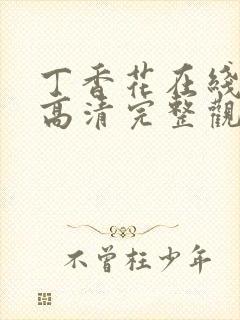 丁香花在綫
高清完整觀
不曾枉少年